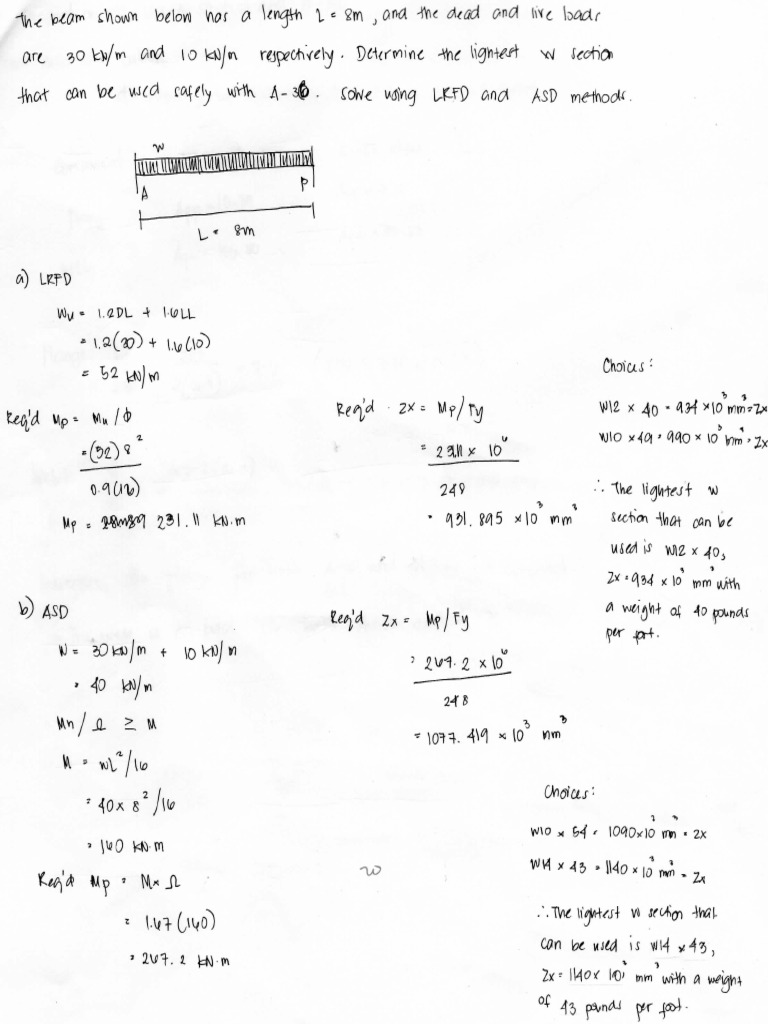 The beam shown below has a length L = 8m, and the dead and live loads
are 30 kN/m and 10 kN/m respectively. Determine the lightest W section
that can be used safely with A-36. Solve using LRFD and ASD methods.
w
A
P
L = 8m
a) LRFD
Wu = 1.2DL + 1.6LL
= 1.2(30) + 1.6(10)
= 52 kN/m
Req'd Mp = Mu/ϕ
= (52) 8²
0.9(16)
Mp = 231.11 kN.m
Req'd Zx = Mp/Fy
= 231.11 x 10⁶
248
= 931.895 x10³ mm³
Choices:
W12 x 40 = 934 x10³ mm³ = Zx
W10 x 49 = 990 x 10³ mm³ = Zx
∴ The lightest W
section that can be
used is W12 x 40,
Zx = 934 x 10³ mm³ with
a weight of 40 pounds
per foot.
b) ASD
W = 30 kN/m + 10 kN/m
= 40 kN/m
Mn/Ω ≥ M
M = wL²/16
= 40 x 8²/16
= 160 kN.m
Req'd Mp = M x Ω
= 1.67 (160)
= 267.2 kN.m
Req'd Zx = Mp/Fy
= 267.2 x 10⁶
248
= 1077.419 x 10³ mm³
20
Choices:
W10 x 54 = 1090x10³ mm³ = Zx
W14 x 43 = 1140 x 10³ mm³ = Zx
∴ The lightest W section that
can be used is W14 x 43,
Zx = 1140x 10³ mm³ with a weight
of 43 pounds per foot.